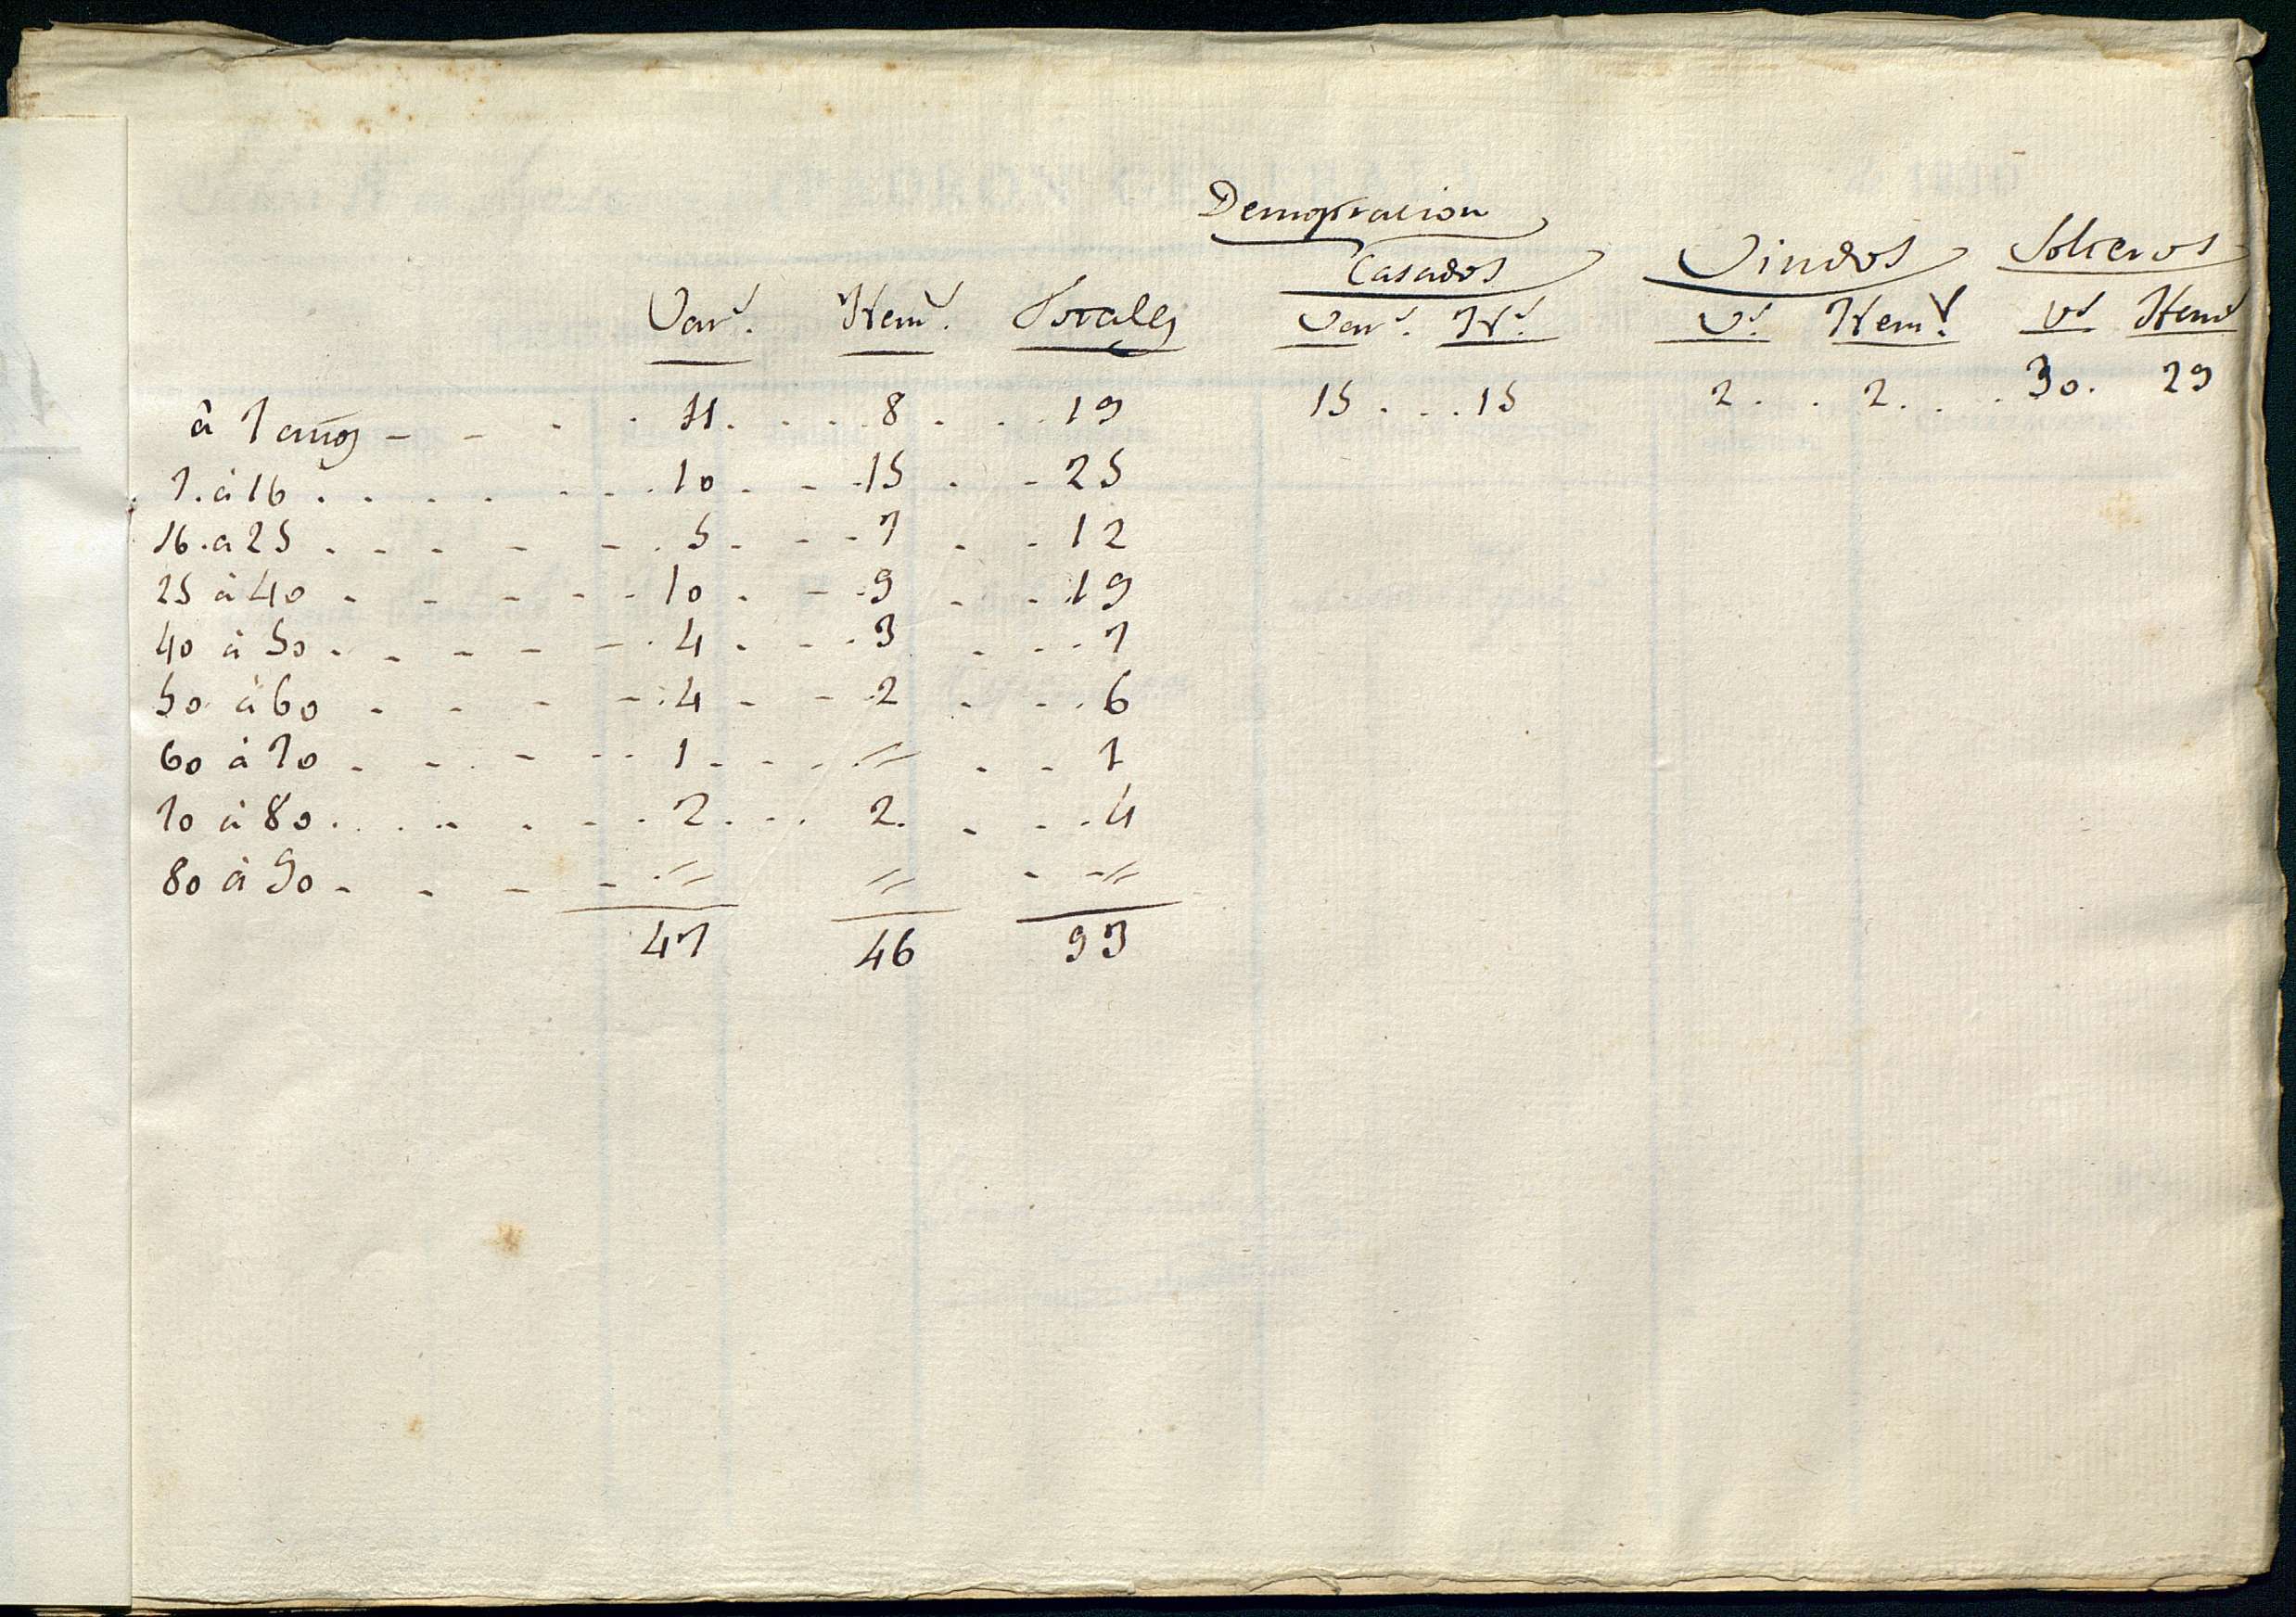 Demostracion
Casados Viudos Solteros
Var.s Hem.s Totales Var.s H.s V.s Hem.s V.s Hem.s
à 7 años 11 8 19 15 15 2 2 30 29
7 à 16 10 15 25
16 a 25 5 7 12
25 à 40 10 9 19
40 à 50 4 3 7
50 à 60 4 2 6
60 à 70 1 = 1
70 à 80 2 2 4
80 à 90 = = =
47 46 93